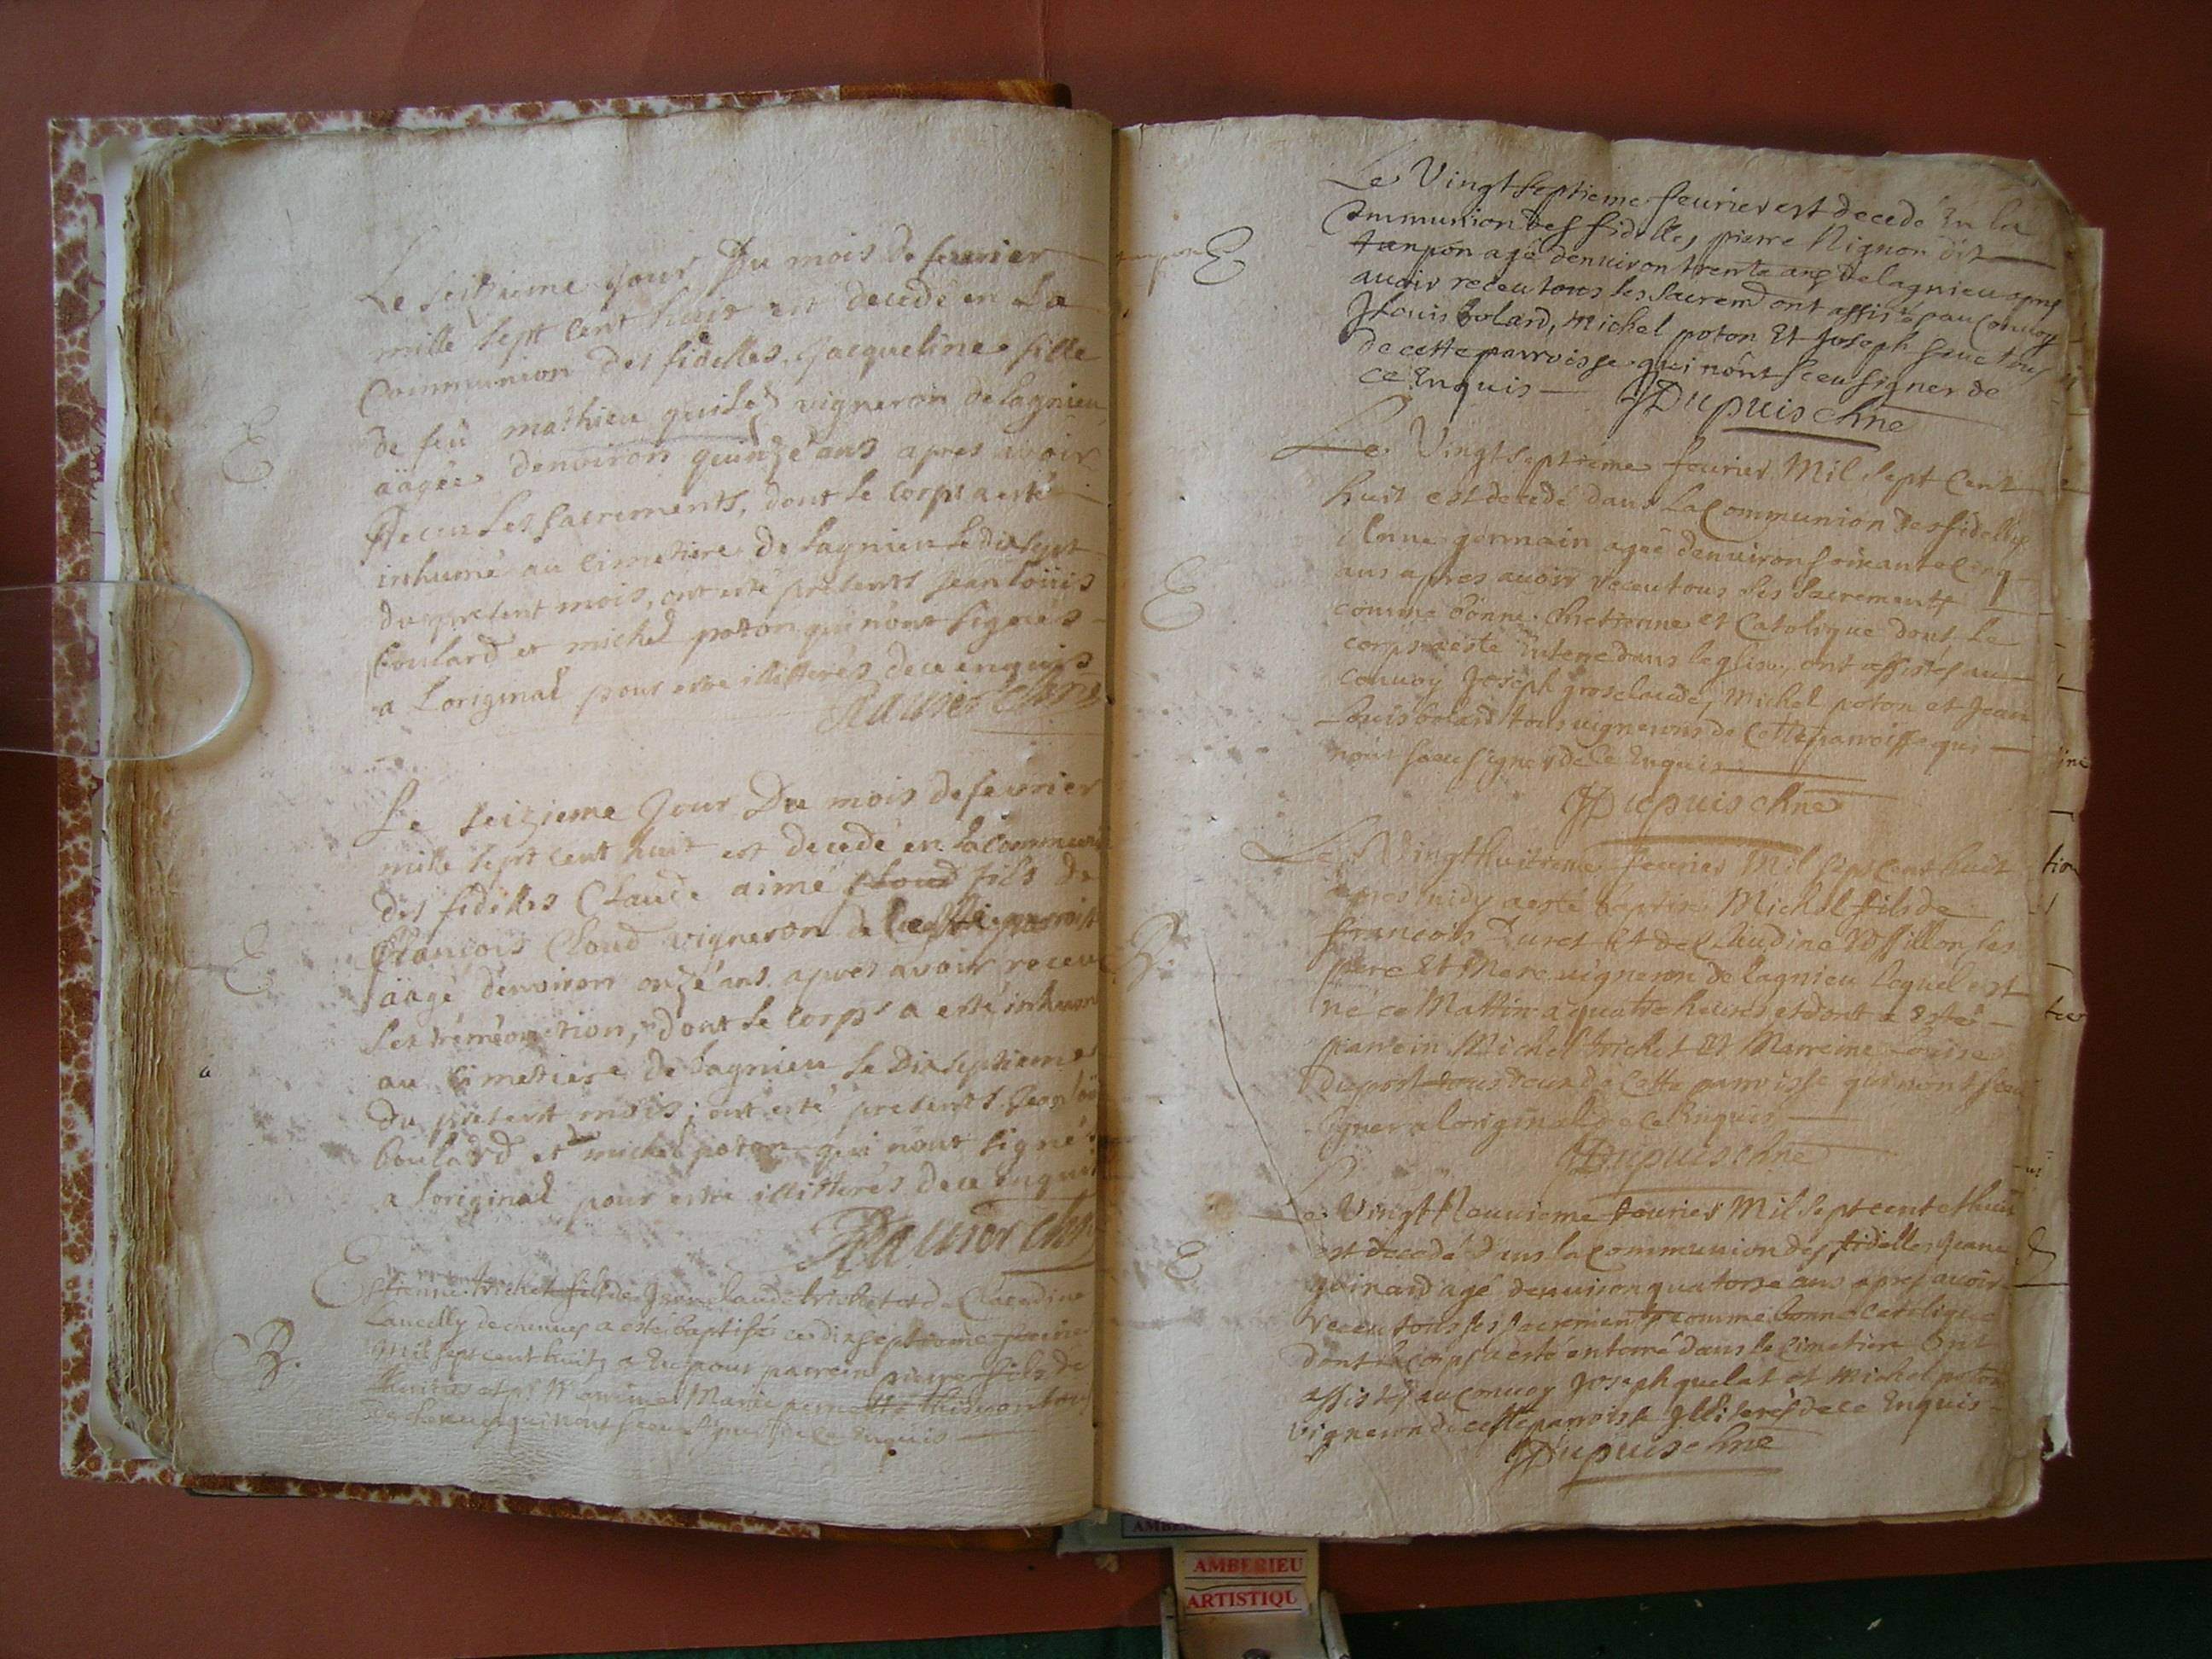 Le seizieme jour Du mois de feurier
mille sept cent huit est decedé en La
Communion des fidelles Jacqueline fille
de feu mathieu vigneron de lagnieu
E
äagée denuiron quinze ans apres avoir
Receu les sacrements, dont le corps a esté
inhumé au cimetiere de Lagnieu le dixsept
du present mois, ont esté presents Jean loüis
boulard et michel poton qui nont signés
a Loriginal pour estre illitterés de ce enquis
Le seizieme Jour Du mois de feurier
mille sept cent huit est decedé en la Communi
des fidelles Claude aimé Cloud fils de
François Cloud vigneron de cette parroisse
E
äagé denuiron onze ans apres avoir receu
dont le corps a esté inhumé
au Cimetiere de Lagnieu le Dixseptieme
du present mois, ont esté presents Jean
boulard et michel poton qui nont signé
a loriginal pour estre illitterés de ce enquis
Estienne trichet fils de Jean claude trichet et de Claudine
a esté baptisé ce dixseptieme feurier
B.
Mil sept cent huit, a Eu pour parrein pierre fils de
Marie
qui nont sceu signer de ce Enquis
Le Vingtseptieme feurier est decedé En la
Communion des fidelles, pierre Nignon dit
E
tanpon agé denuiron trente ans de lagnieu apres
auoir receu tous les sacrem ont assisté au Conuoy
JLouis bolard, Michel poton Et Joseph tous
de cette parroisse qui nont sceu signer de
ce Enquis
JDupuis chne
Le Vingtseptieme feurier Mil sept Cent
huit est decedé dans La Communion des fidelles
germain ageé denuiron soixante Cinq
ans apres auoir receu tous les Sacrements
E
comme bonne Chretienne et Catolique dont Le
corps a esté Enterré dans leglise, ont assistés au
Conuoy Joseph grosclaude, Michel poton et Jean
Louis bolard tous vignerons de Cette parroisse qui
nont sceu signer de Ce Enquis
JDupuis chne
Le Vingthuitieme feurier Mil sept Cent huit
apres midy a esté baptisé Michel fils de
françois Et de Claudine ses
B.
pere Et Mere vigneron de Lagnieu lequel est
né ce Mattin a quatre heures et dont a Esté
parrein Michel trichet Et Marreine Louise
Duport tous deux de Cette parroisse qui nont sceu
signer a loriginal de ce Enquis
JDupuis chne
Le Vingt Neuuieme feurier Mil sept cent et huit
est decedé dans la Communion des fidelles Jeane
E
guinard agé denuiron quatorse ans apres auoir
receu tous les sacrements comme bonne Catolique
dont le Corps a esté enterré dans le Cimetiere Ont
assistés au Conuoy Joseph quelat et Michel poton
vigneron de cette parroisse Jlliterés de ce Enquis
JDupuis chne
AMBERIEU
ARTISTIQU